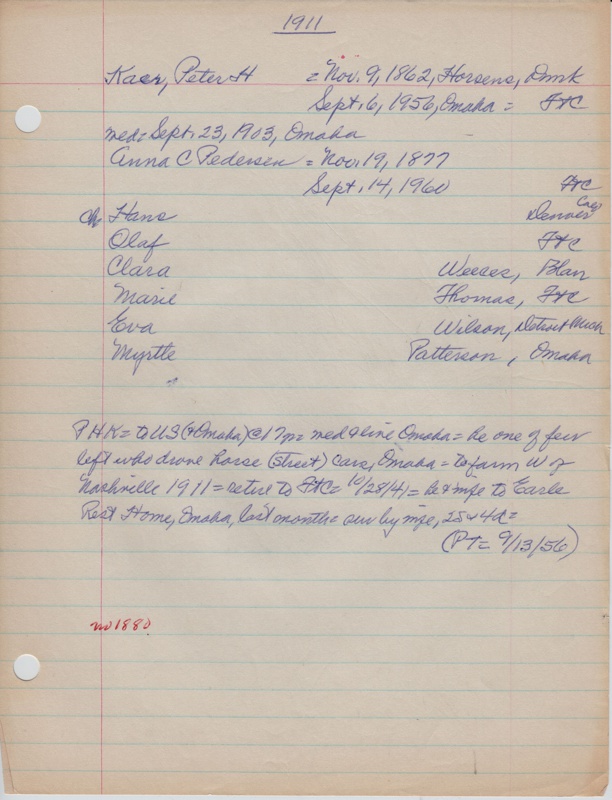 1911
Kaer, Peter H = Nov. 9, 1862, Horsens, Dmk
Sept. 6, 1956, Omaha = FtC
med = Sept. 23, 1903, Omaha
Anna C Pedersen = Nov. 19, 1877
Sept. 14, 1960 FtC
ch Hans Denver
Olaf FtC
Clara Weeces, Blair
Marie Thomas, FtC
Eva Wilson, Detroit Mich
Myrtle Patterson, Omaha
P H K = to US (& Omaha) @ 17 = med & live Omaha = he one of few
left who drove horse (street) cars, Omaha = to farm W of
Nashville 1911 = retire to FtC = 10/28/41 = he & mfe to Earle
Rest Home, Omaha, last months = sur by mfe, 2S & 4d =
(PT = 9/13/56)
no 1880